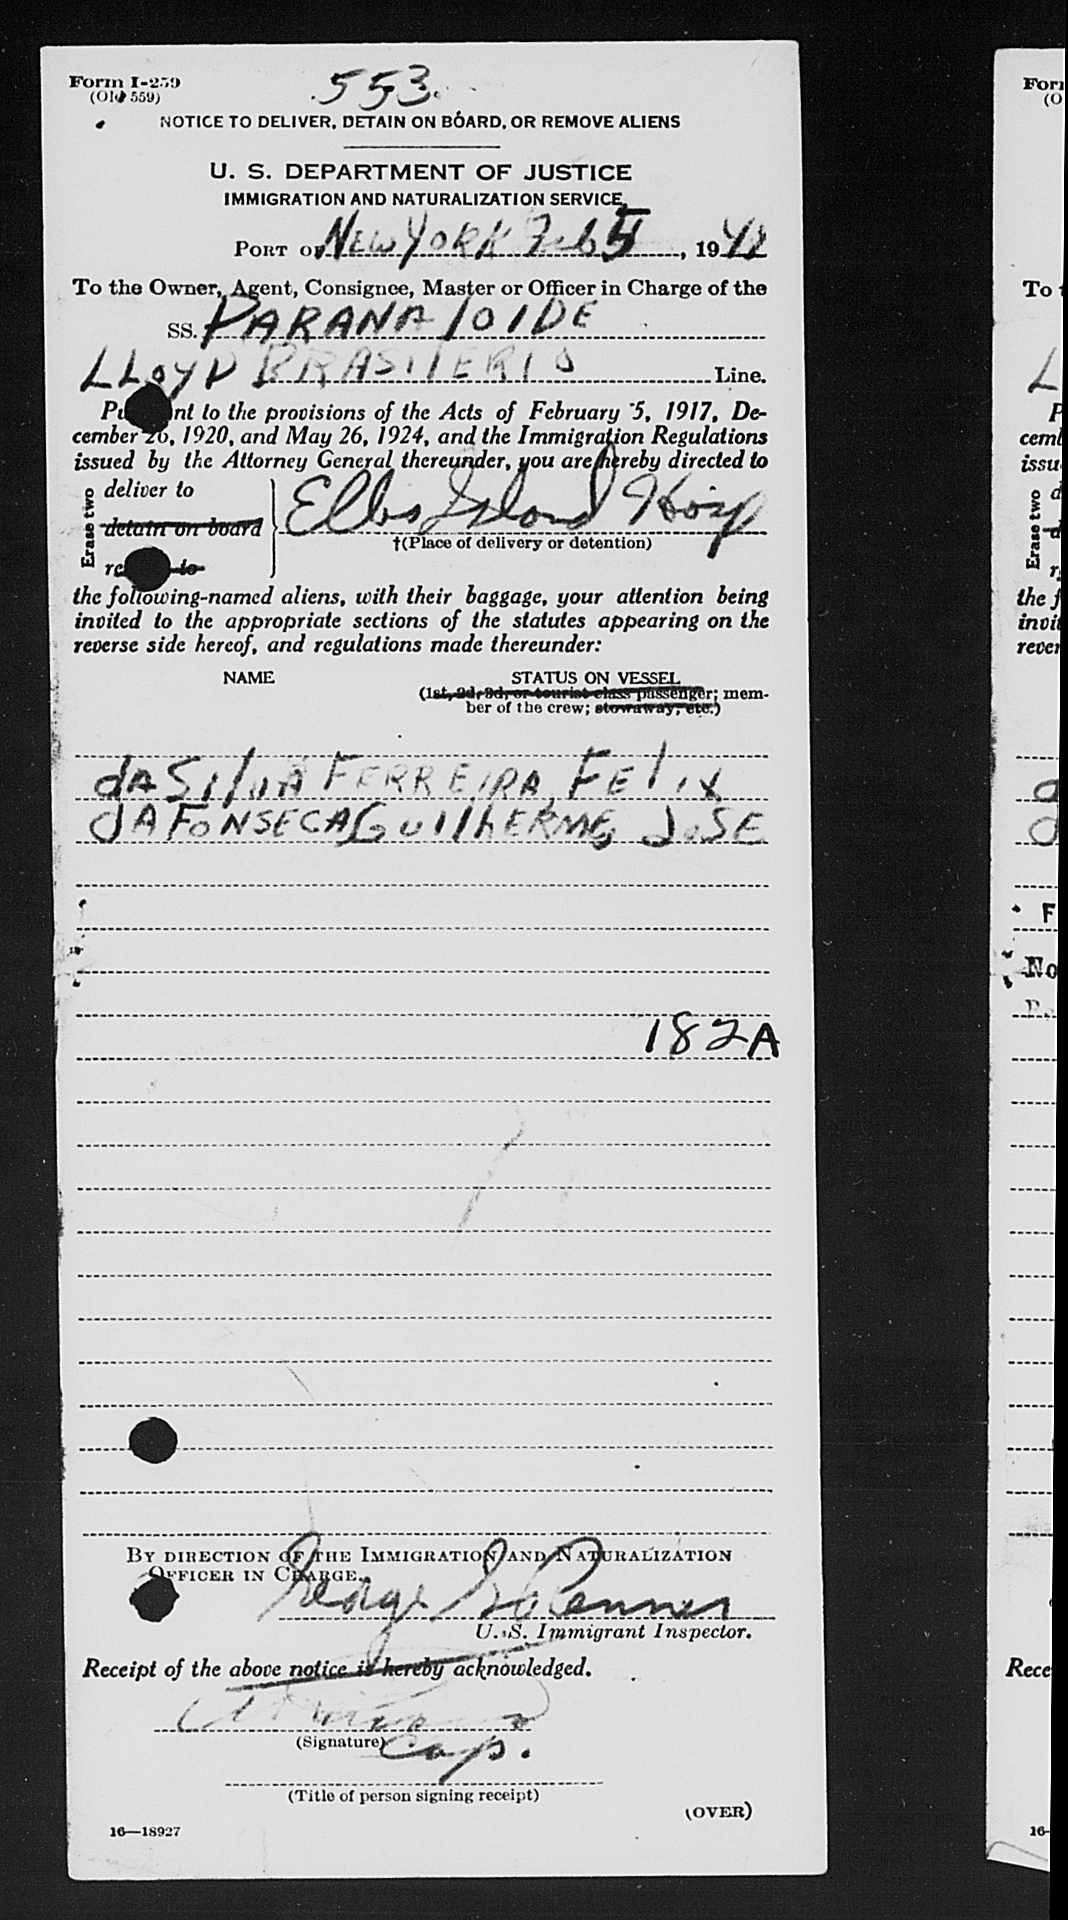 Form I-259
(Old 559)
553
NOTICE TO DELIVER, DETAIN ON BOARD, OR REMOVE ALIENS
U. S. DEPARTMENT OF JUSTICE
IMMIGRATION AND NATURALIZATION SERVICE
PORT OF NEW YORK Feb 5, 19
To the Owner, Agent, Consignee, Master or Officer in Charge of the
SS. PARANA LOIDE
LLOYD BRASILERIO Line.
Pursuant to the provisions of the Acts of February 5, 1917, De-
cember 26, 1920, and May 26, 1924, and the Immigration Regulations
issued by the Attorney General thereunder, you are hereby directed to
Erase two
deliver to
detain on board
remove to
Ellis Island Hosp
†(Place of delivery or detention)
the following-named aliens, with their baggage, your attention being
invited to the appropriate sections of the statutes appearing on the
reverse side hereof, and regulations made thereunder:
NAME STATUS ON VESSEL
(1st, 2d, 3d, or tourist class passenger; mem-
ber of the crew; stowaway, etc.)
dA SilvA FERREIRA, FElix
dA FONSECA GUIlhERME, JOSE
182A
BY DIRECTION OF THE IMMIGRATION AND NATURALIZATION
OFFICER IN CHARGE.
George Penner
U. S. Immigrant Inspector.
Receipt of the above notice is hereby acknowledged.
(Signature)
Cap.
(Title of person signing receipt)
(OVER)
16—18927